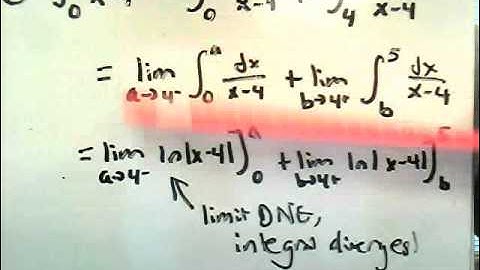 ∫₀ x-4
= lim a→4⁻ ∫₀ᵃ dx/x-4 + lim b→4⁺ ∫_b⁵ dx/x-4
= lim a→4⁻ ln|x-4|]₀ᵃ + lim b→4⁺ ln|x-4|]_b⁵
limit DNE,
integral diverges!